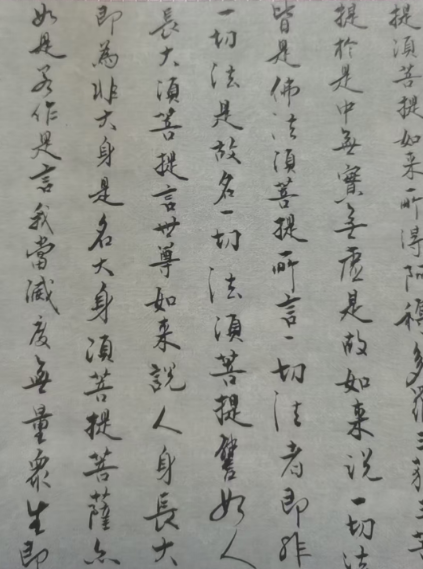 提須菩提如来所得阿耨多羅三藐三菩
提於是中無實無虛是故如来说一切法
皆是佛法須菩提所言一切法者即非
一切法是故名一切法須菩提譬如人
長大須菩提言世尊如来說人身長大
即為非大身是名大身須菩提菩薩亦
如是若作是言我當滅度無量衆生即